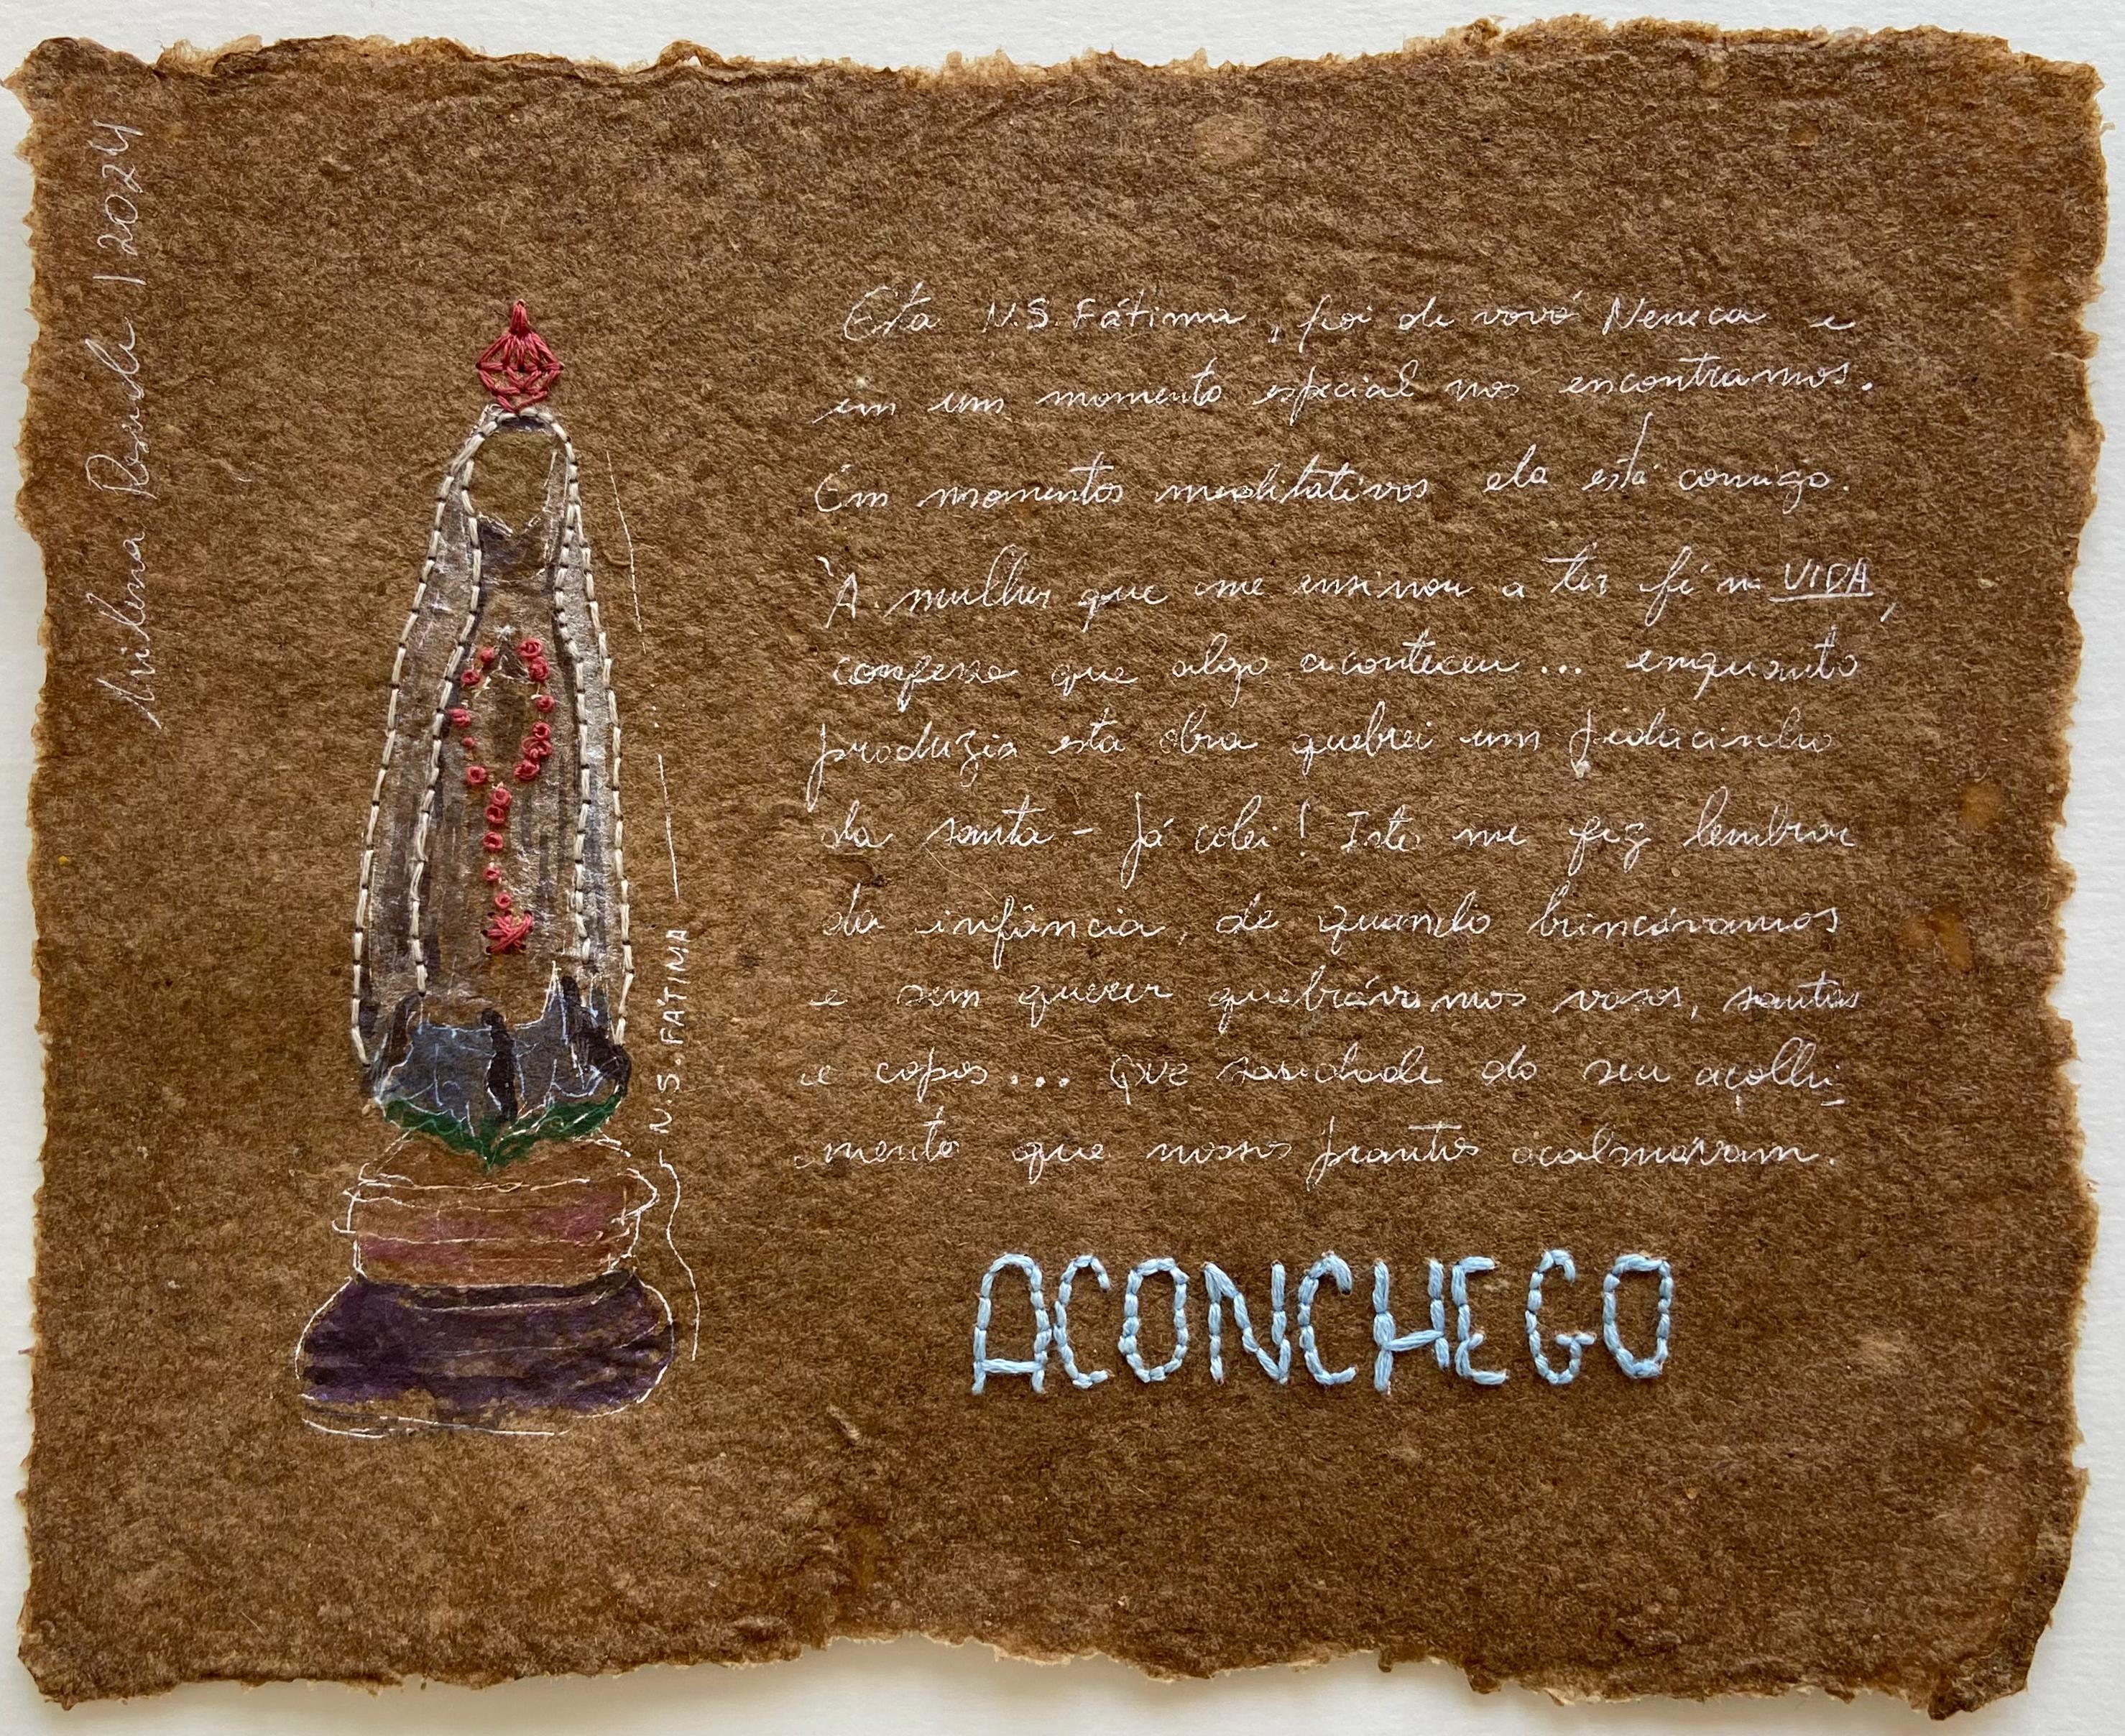 Milena Resende | 2024
Esta N.S. Fátima, foi de vovó Neneca e
em um momento especial nos encontramos.
Em momentos meditativos ela está comigo.
À mulher que me ensinou a ter fé na VIDA,
confesso que algo aconteceu... enquanto
produzia esta obra quebrei um pedacinho
da santa - já colei! Isto me fez lembrar
da infância, de quando brincávamos
e sem querer quebrávamos vasos, santos
e copos... QUE saudade do seu acolhi_
mento que nossos prantos acalmavam.
N.S. FÁTIMA
ACONCHEGO